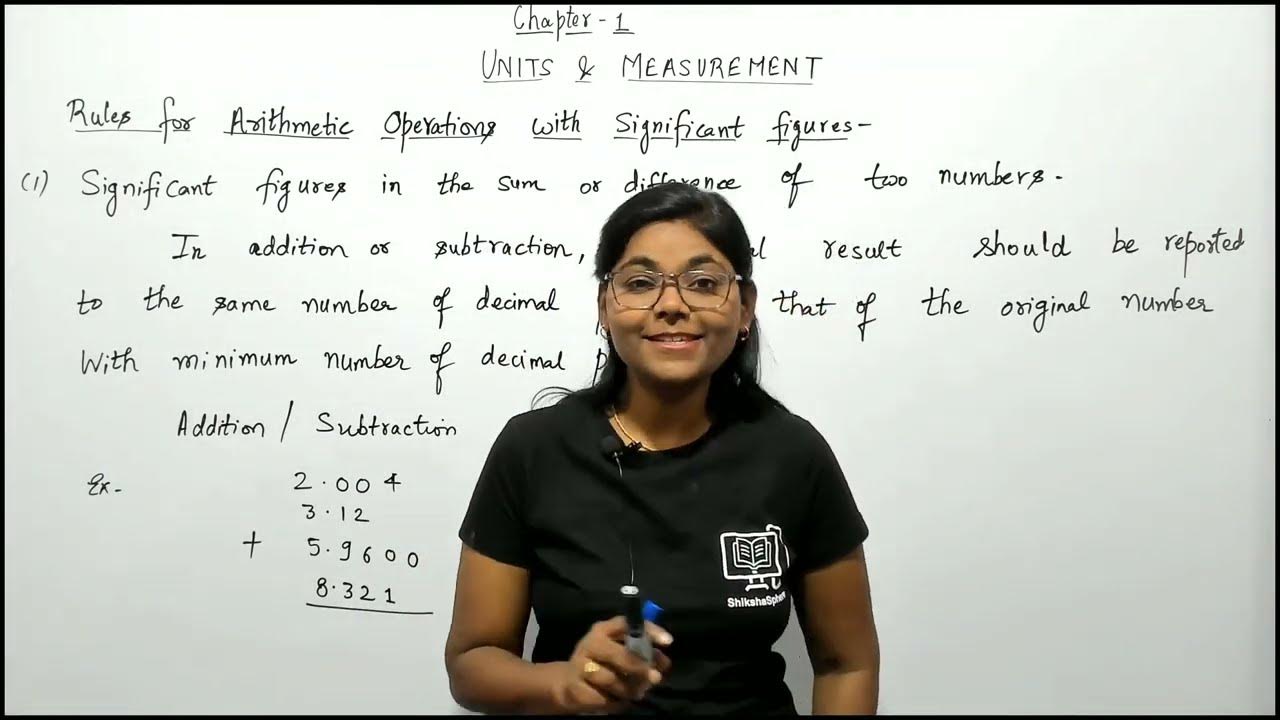 Chapter - 1
UNITS & MEASUREMENT
Rules for Arithmetic Operations with Significant figures-
(1) Significant figures in the sum or difference of two numbers.
In addition or subtraction, result should be reported
to the same number of decimal that of the original number
With minimum number of decimal
Addition / Subtraction
Ex.
2.004
3.12
+ 5.9600
8.321
ShikshaSphere